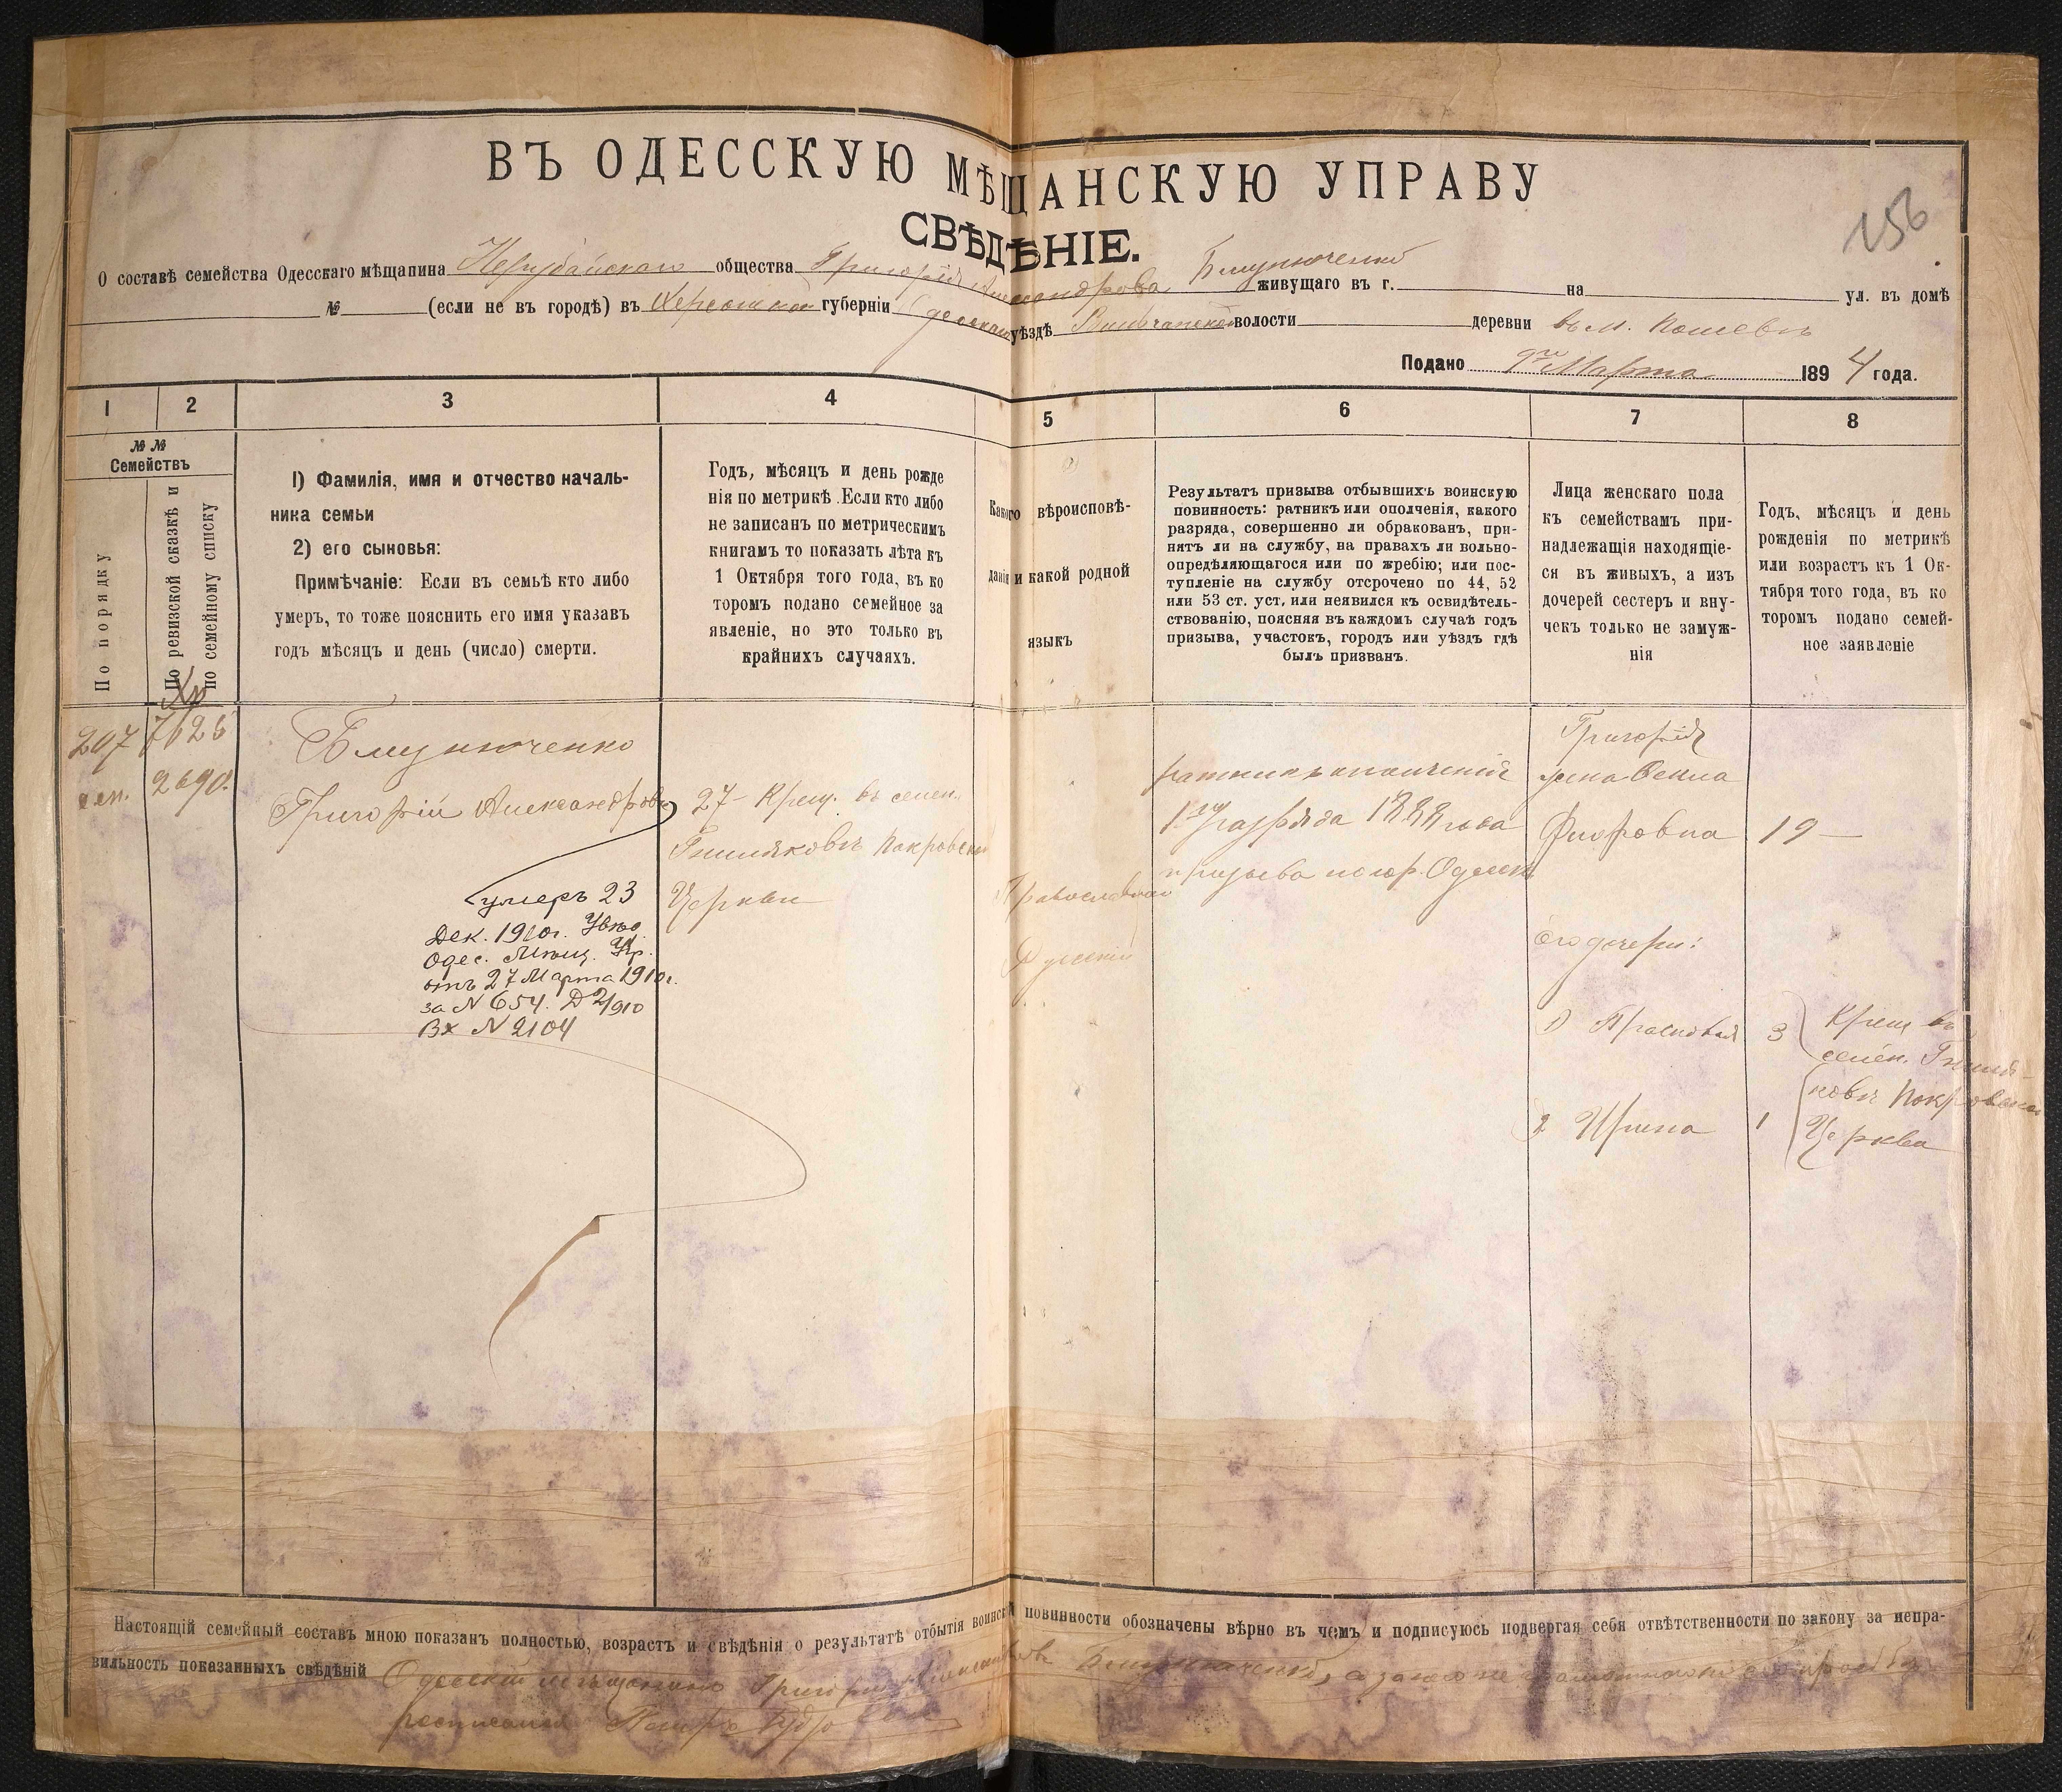 ВЪ ОДЕССКУЮ МѢЩАНСКУЮ УПРАВУ
СВѢДѢНІЕ.
156
О составѣ семейства Одесскаго мѣщанина Нерубайскаго общества Григорія Александрова живущаго въ г. на ул. въ домѣ
№ (если не въ городѣ) въ Херсонской губерніи Одесскаго уѣздѣ волости деревни въ м.
Подано 9го Марта 1894 года.
1 2 3 4 5 6 7 8
№ № Семействъ
По порядку
По ревизской сказкѣ и
по семейному списку
1) Фамилія, имя и отчество началь-
ника семьи
2) его сыновья:
Примѣчаніе: Если въ семьѣ кто либо
умеръ, то тоже пояснить его имя указавъ
годъ мѣсяцъ и день (число) смерти.
Годъ, мѣсяцъ и день рожде
нія по метрикѣ. Если кто либо
не записанъ по метрическимъ
книгамъ то показать лѣта къ
1 Октября того года, въ ко
торомъ подано семейное за
явленіе, но это только въ
крайнихъ случаяхъ.
Какого вѣроисповѣ-
данія и какой родной
языкъ
Результатъ призыва отбывшихъ воинскую
повинность: ратникъ или ополченія, какого
разряда, совершенно ли обракованъ, при-
нятъ ли на службу, на правахъ ли вольно-
опредѣляющагося или по жребію; или пос-
тупленіе на службу отсрочено по 44, 52
или 53 ст. уст. или неявился къ освидѣтель-
ствованію, поясняя въ каждомъ случаѣ годъ
призыва, участокъ, городъ или уѣздъ гдѣ
былъ призванъ.
Лица женскаго пола
къ семействамъ при-
надлежащія находящіе-
ся въ живыхъ, а изъ
дочерей сестеръ и вну-
чекъ только не замуж-
нія
Годъ, мѣсяцъ и день
рожденія по метрикѣ
или возрастъ къ 1 Ок-
тября того года, въ ко
торомъ подано семей-
ное заявленіе
207
2690.
Григорій Александровъ
умеръ 23
Дек. 1910г. Увѣд.
Одес. Мѣщ. Упр.
отъ 27 Марта 1910г.
за N 654. Д 2/910
Вх N 2104
27 - Крещ. въ селен.
Гниляковъ Покровской
Церкви
Православной
Русскій
ратникъ ополченія
1го разряда 1888 года
призыва по гор. Одессѣ
Григорія
жена
19 —
Его дочери:
1) Прасковья 3
2 Ирина 1
Крещ въ
селен. Гниля-
ковъ Покровской
Церкви
Настоящій семейный составъ мною показанъ полностью, возрастъ и свѣдѣнія о результатѣ отбытія воинской повинности обозначены вѣрно въ чемъ и подписуюсь подвергая себя отвѣтственности по закону за непра-
вильность показанныхъ свѣдѣній Одесскій мѣщанинъ Григорій Александровъ